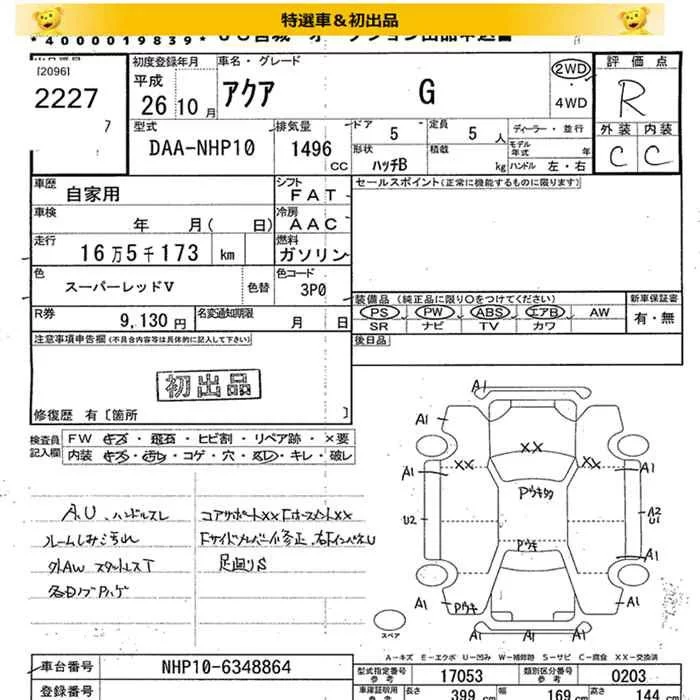 特選車＆初出品
*4000019839*
[2096]
2227
7
初度登録年月
平成
26年10月
車名・グレード
アクア G
2WD
・4WD
評価点
R
外装 内装
C C
型式
DAA-NHP10
排気量
1496 CC
ドア
5
定員
5人
形状
ハッチB
積載
kg
ディーラー・並行
モデル年式 年
ハンドル 左・右
車歴
自家用
シフト
FAT
セールスポイント(正常に機能するものに限ります)
車検
年 月( 日)
冷房
AAC
走行
16万5千173 km
燃料
ガソリン
色
スーパーレッドV
色替
色コード
3P0
装備品(純正品に限り○をつけてください)
新車保証書
PS PW ABS エアB AW
有・無
SR ナビ TV カワ
R券
9,130円
名変通知期限
月 日
後日品
注意事項申告欄(不具合内容等は具体的に記入して下さい)
初出品
修復歴 有[箇所 ]
検査員記入欄
FW キズ・飛石・ヒビ割・リペア跡・×要
内装 キズ・汚れ・コゲ・穴・スレ・キレ・破レ
A.U、ハンドルスレ
ルームしみ汚れ
外AW スタットレスT
コアサポートXX
足廻りS
A1
A1 A1
XX
XX XX
A1 A1
Pウキ
U2
A2
U1
Pウキ
A1 A1
A1 Pウキ A1
A1
スペア
A-キズ E-エクボ U-凹み W-補修跡 S-サビ C-腐食 XX-交換済
車台番号
NHP10-6348864
型式指定番号
参考
17053
類別区分番号
参考
0203
登録番号
車庫証明用
参考
長さ 399 cm 幅 169 cm 高さ 144 cm